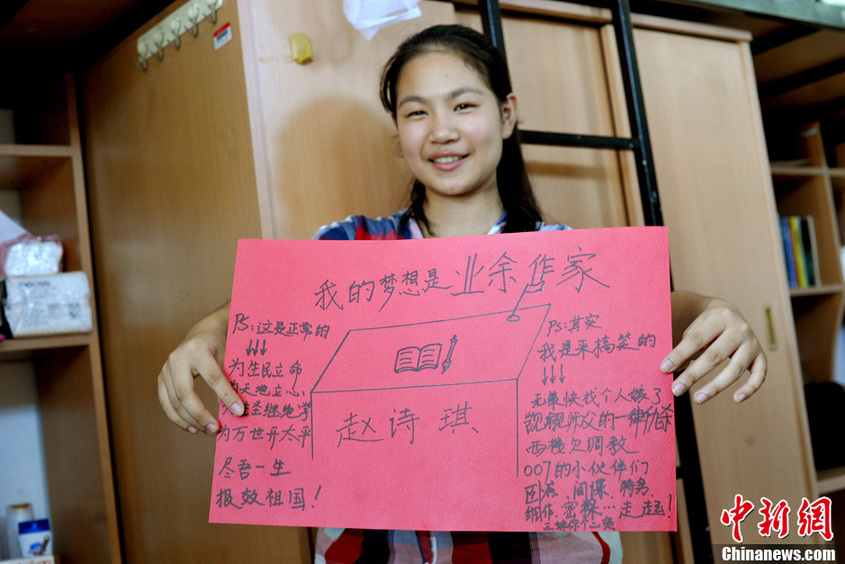 我的梦想是业余作家
PS:这是正常的
↓↓↓
为生民立命
为天地立心、
圣继绝学
为万世开太平
尽吾一生
报效祖国!
赵诗琪
PS:其实
我是来搞笑的
↓↓↓
无策快找个人嫁了
觊觎师父的一律
西楼欠调教
007的小伙伴们
卧底、间谍、特务、
细作、密探…走走走!
中新网
www.
Chinanews.com
Chinanews.com